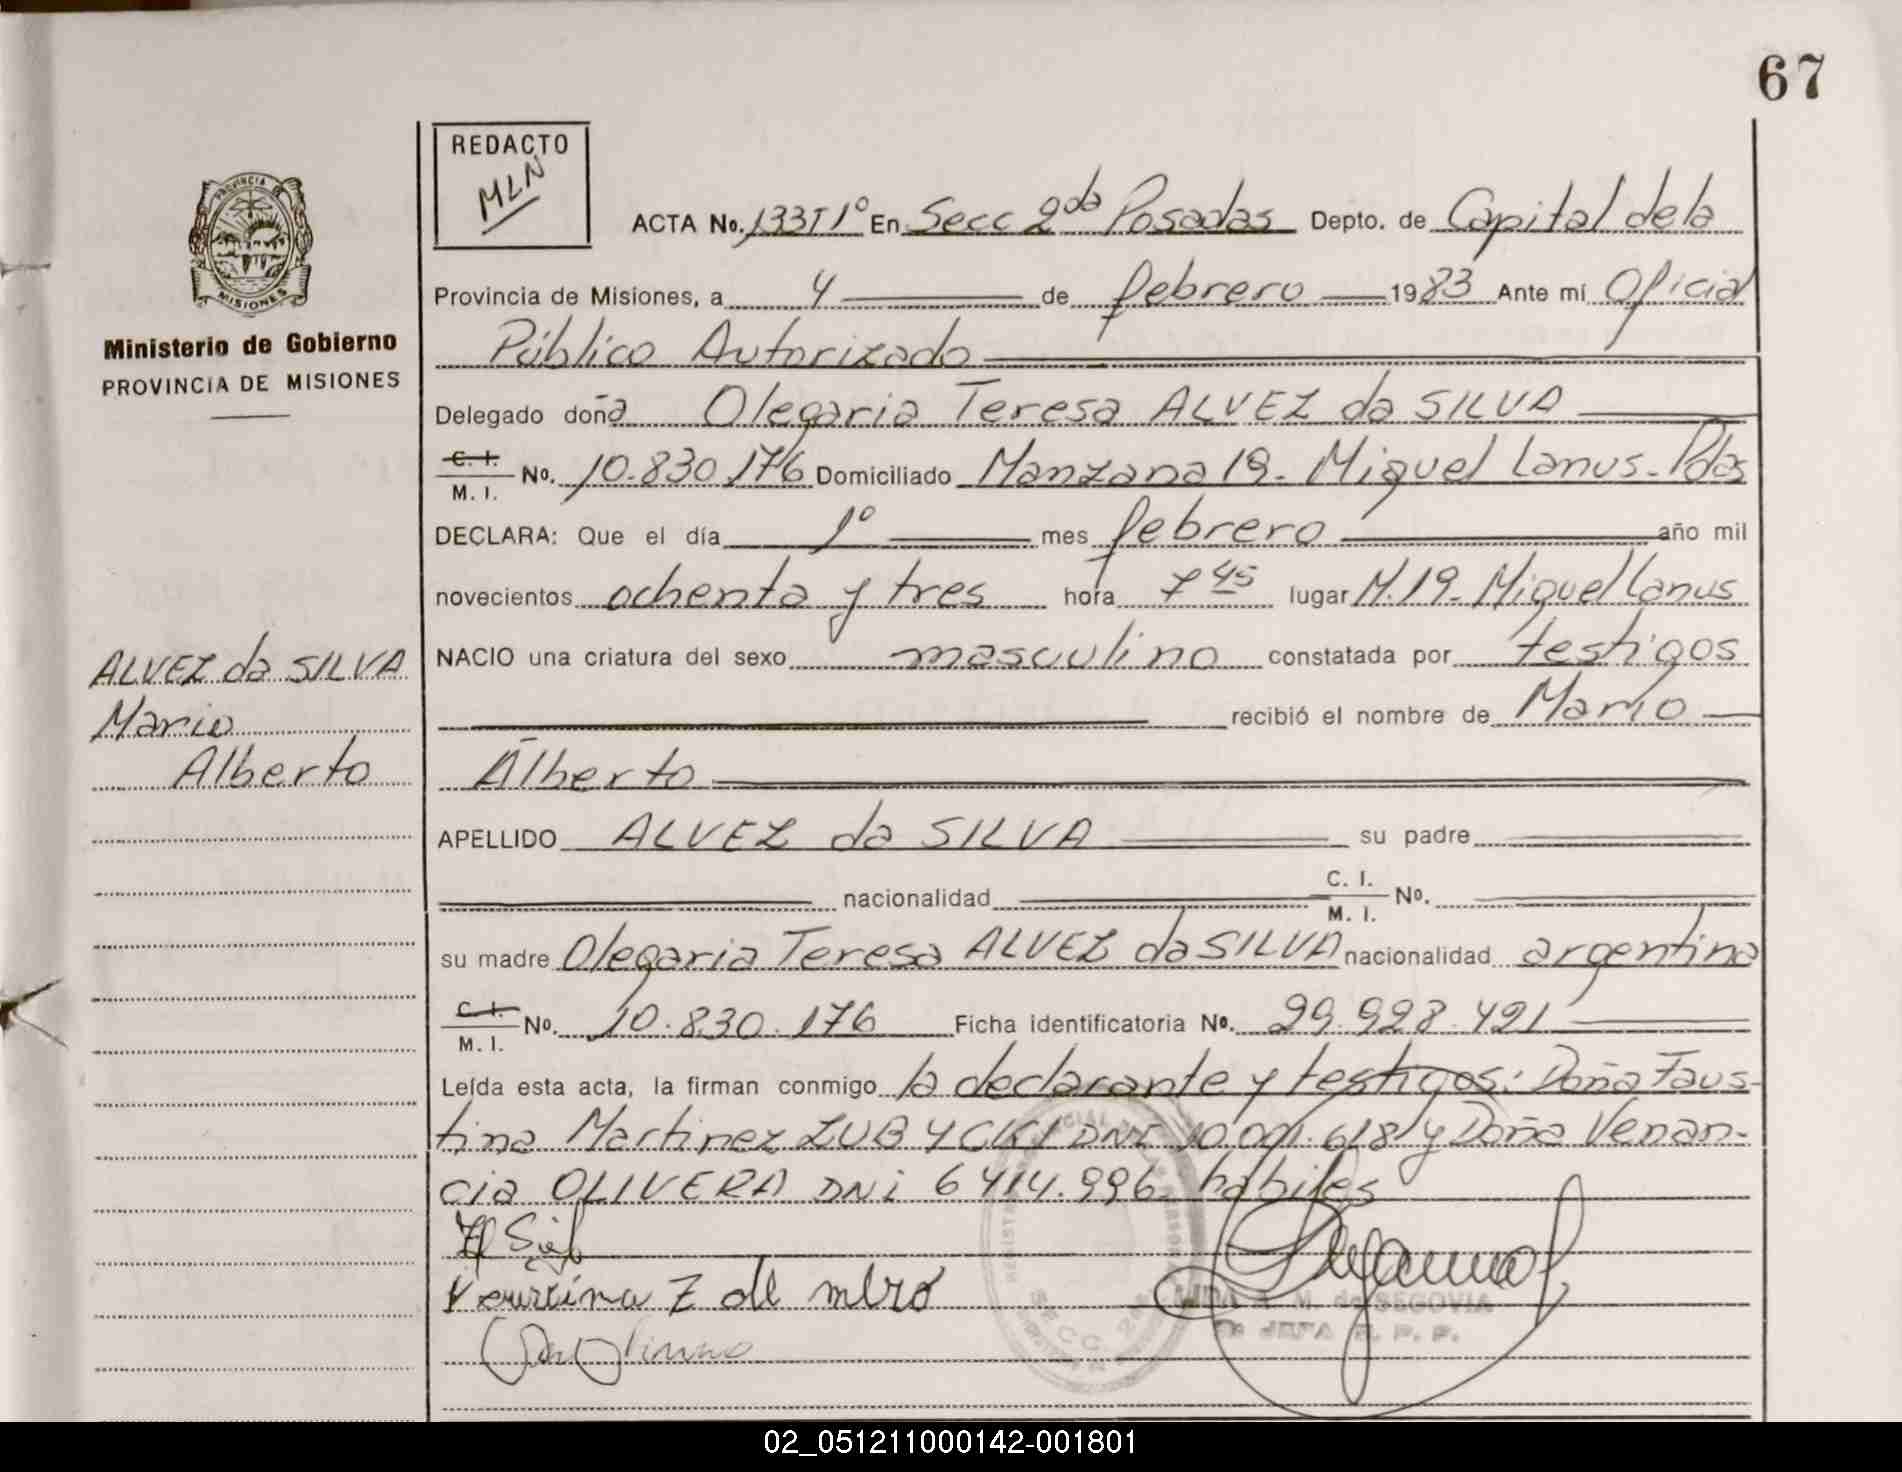 67
REDACTO
MLN
PROVINCIA
MISIONES
Ministerio de Gobierno
PROVINCIA DE MISIONES
ACTA No. 133T1º En Secc 2da Posadas Depto. de Capital de la
Provincia de Misiones, a 4 de febrero 1983 Ante mí Oficial
Público Autorizado
Delegado doña Olegaria Teresa ALVEZ da SILVA
C. I. M. I. No. 10.830.176 Domiciliado Manzana 19- Miguel Lanus- Pdas
DECLARA: Que el día 1º mes febrero año mil
novecientos ochenta y tres hora 7 45 lugar M.19- Miguel Lanus
NACIO una criatura del sexo masculino constatada por testigos
recibió el nombre de Mario
Alberto
ALVEZ da SILVA
Mario
Alberto
APELLIDO ALVEZ da SILVA su padre
nacionalidad C. I. M. I. No.
su madre Olegaria Teresa ALVEZ da SILVA nacionalidad argentina
C. I. M. I. No. 10.830.176 Ficha identificatoria No. 29.928.421
Leída esta acta, la firman conmigo la declarante y testigos: Doña Faus-
tina Martinez ZUBYCKI DNI 10.001.618 y Doña Venan-
cia OLIVERA DNi 6414.996 habiles
M. de SEGOVIA
JEFA R. P. P.
SECC 2da
02_051211000142-001801